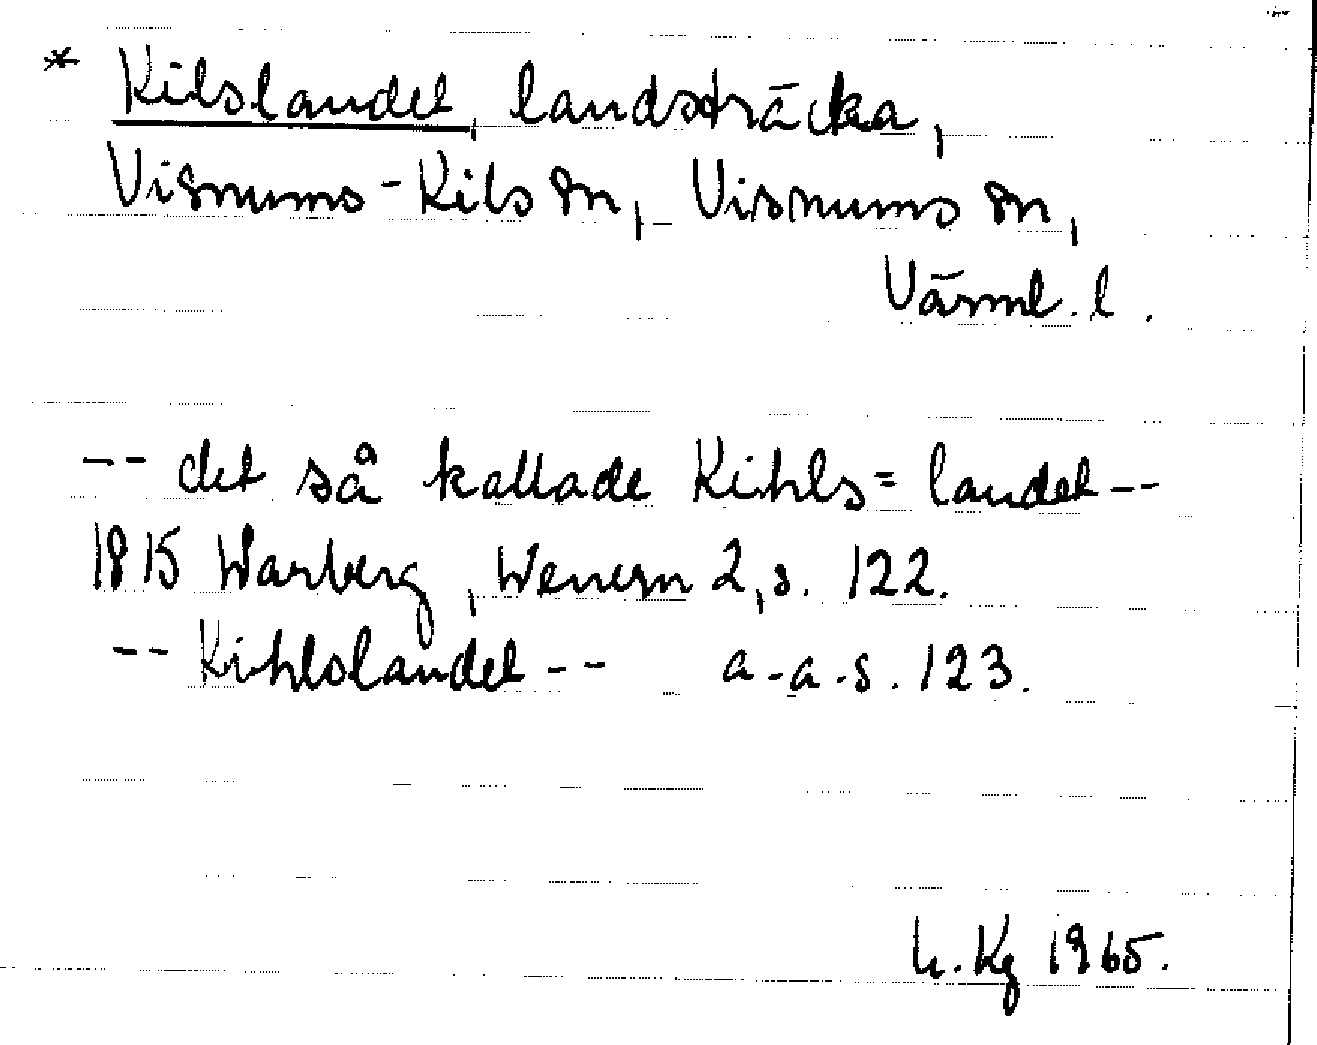 * Kilslandet, landsträcka,
Visnums-Kils sn, Visnums sn,
Värml. l.
-- det så kallade Kihls=landet --
1815 Warberg, Wenern 2, s. 122.
-- Kihlslandet -- a.a.s. 123.
h. Kg 1965.